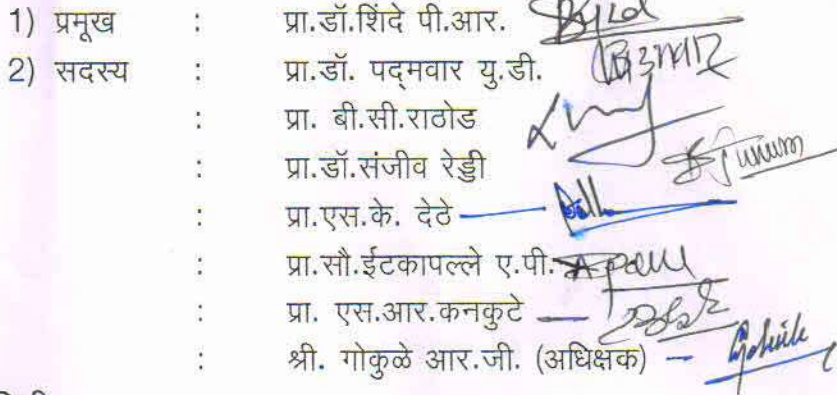 1) प्रमुख : प्रा.डॉ.शिंदे पी.आर.
2) सदस्य : प्रा.डॉ. पद्मवार यु.डी.
: प्रा. बी.सी.राठोड
: प्रा.डॉ.संजीव रेड्डी
: प्रा.एस.के. देठे
: प्रा.सौ.ईटकापल्ले ए.पी.
: प्रा. एस.आर.कनकुटे
: श्री. गोकुळे आर.जी. (अधिक्षक)